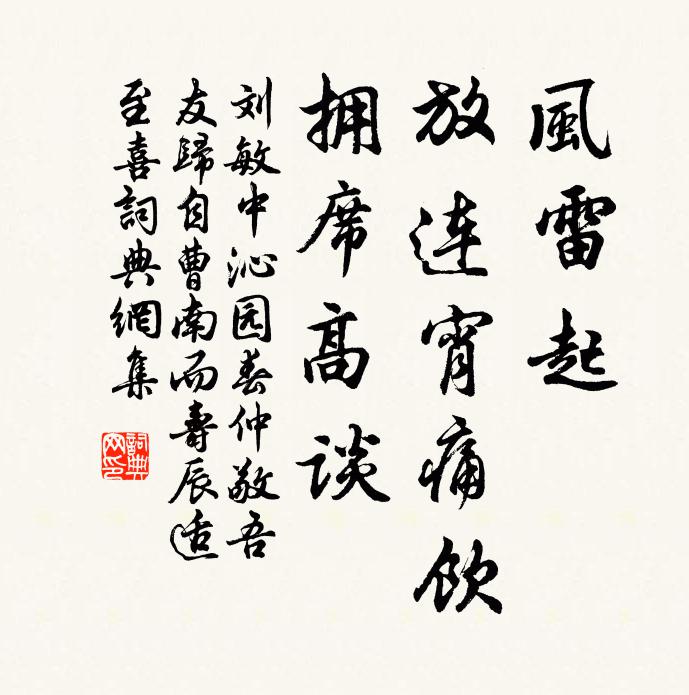 風雷起
放连宵痛饮
拥席高谈
刘敏中沁园春仲敬吾
友歸自曹南而壽辰适
至喜詞典網集
詞典网印